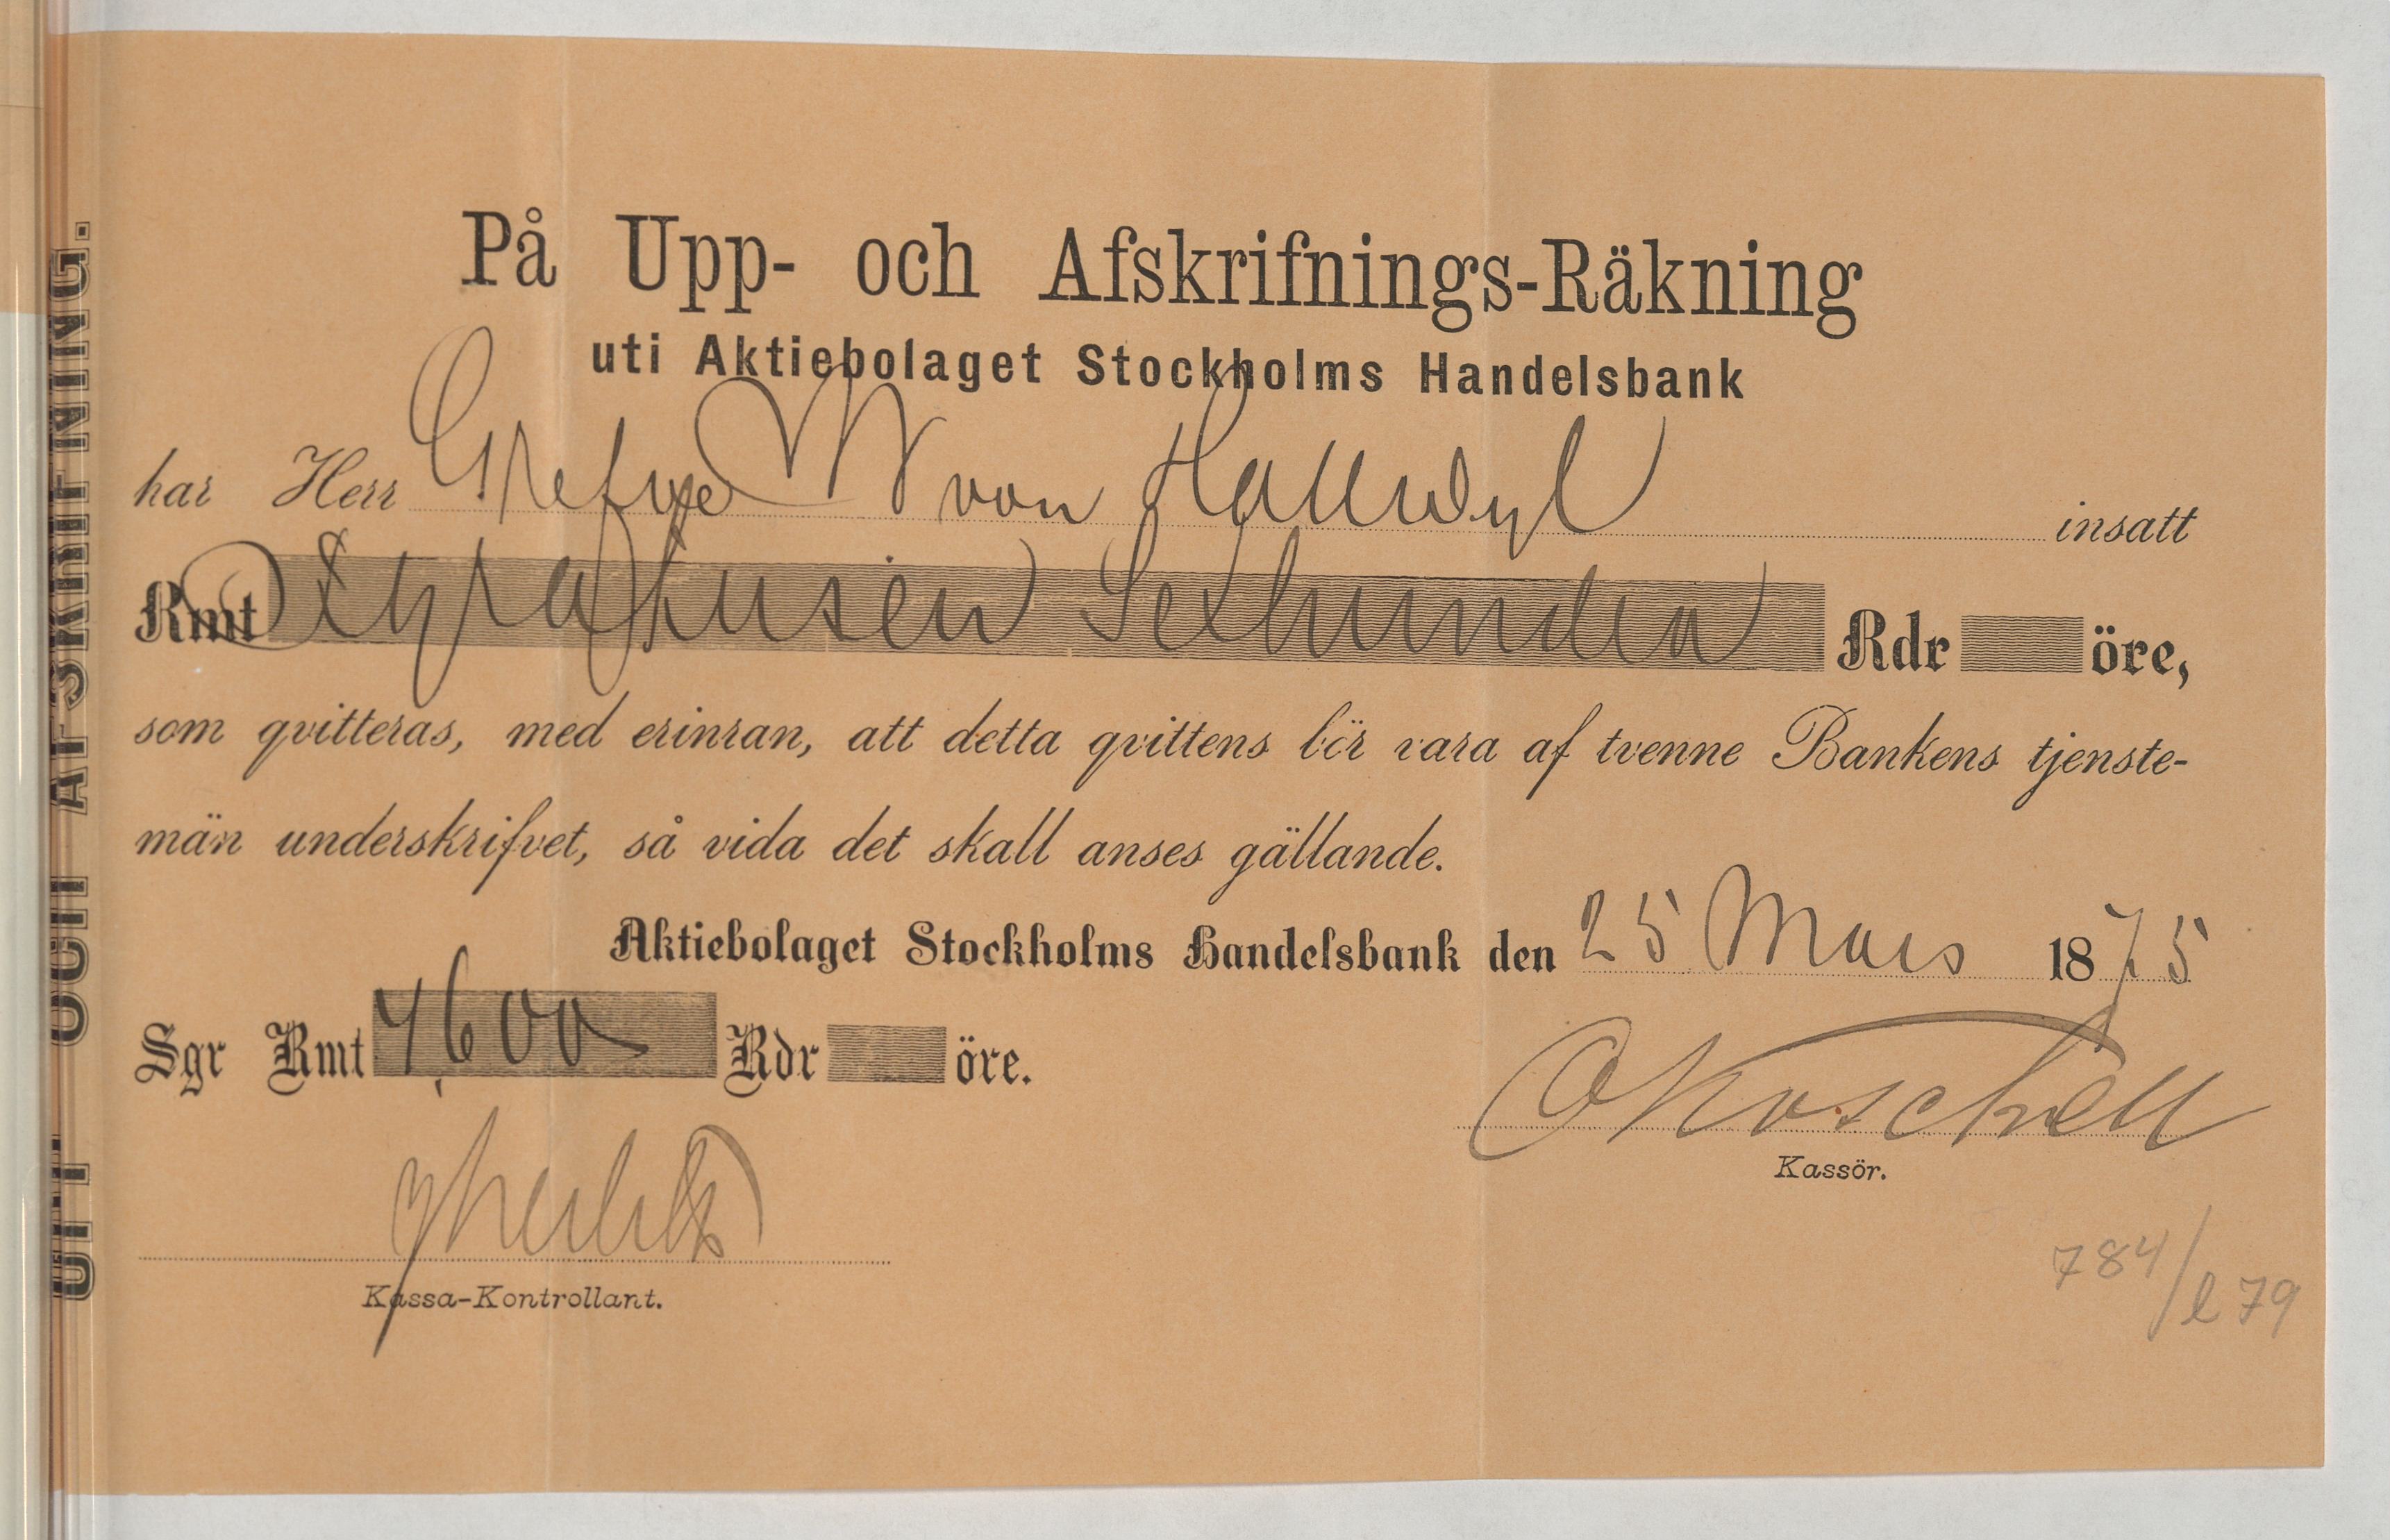 UPP- OCH AFSKRIFNING.
På Upp- och Afskrifnings-Räkning
uti Aktiebolaget Stockholms Handelsbank
har Herr Grefve W von Hallwyl insatt
Rmt Fyratusen Sexhundra Rdr öre,
som qvitteras, med erinran, att detta qvittens bör vara af tvenne Bankens tjenste-
män underskrifvet, så vida det skall anses gällande.
Aktiebolaget Stockholms Handelsbank den 25 Mars 1875
Sgr Rmt 4,600 Rdr öre.
Kassör.
Kassa-Kontrollant.
784/l 79